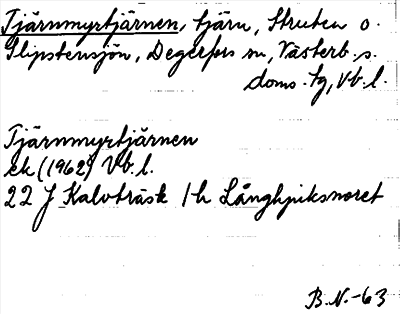 Tjärnmyrtjärnen, tjärn, Struten o.
Slipstensjön, Degerfors sn, Västerb. s.
doms. tg, Vb. l.
Tjärnmyrtjärnen
ek (1962) Vb. l.
22 J Kalvträsk 1h Långhpiksnoret
B. N. -63